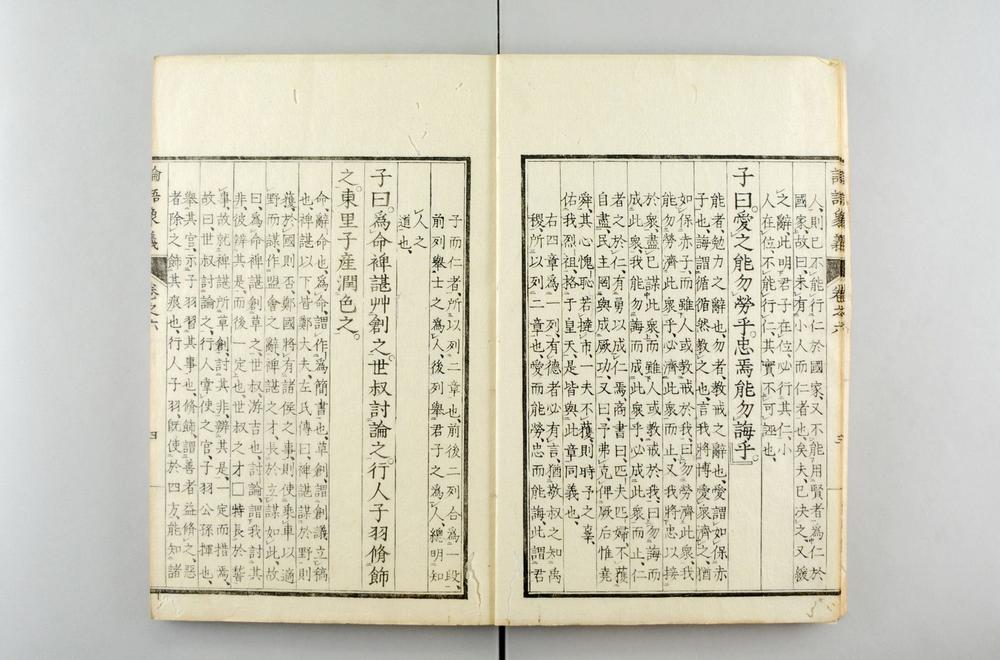 論語象義 卷之六 三
人、則已不能行仁於國家、又不能用賢者爲仁於
國家、故曰、未有小人而仁者也、矣夫、已決之又緩
之辭、此明君子在位、必行其仁、小
人在位、不能行仁、其實不可誣也、
子曰。愛之能勿勞乎。忠焉能勿誨乎。
能者勉力之辭也、勿者、教戒之辭也、愛謂如保赤
子也、誨謂循循然教之也、言我將博愛衆濟之、猶
如保赤子、而雖人或教戒於我、曰勿勞濟此衆、我
能勿勞濟此衆乎、必濟此衆而止、又我將忠以接
於衆、盡己謀此衆、而雖人或教戒於我、曰勿誨而
成此衆、我能勿誨而成此衆乎、必成此衆而止、仁
者之於仁、有勇以成仁焉、商書曰、匹夫匹婦不獲
自盡、民主罔與成厥功、又曰、予弗克俾厥后惟堯
舜、其心愧恥、若撻于市、一夫不獲、則時予之辜、
佑我烈祖、格于皇天、是皆與此章同義也、
右四章爲一列、有德者必有言、猶敬叔之知禹
稷、所以列二章也、愛而能勞、忠而能誨、此謂君
子而仁者、所以列二章也、前後二列合爲一段、
前列舉士之爲人、後列舉君子之爲人、總明知
人之
道也、
子曰。爲命裨諶艸創之。世叔討論之。行人子羽脩飾
之。東里子產潤色之。
命、辭命也、爲命、謂作爲簡書也、草創、謂創議立稿
也、裨諶以下、皆鄭大夫、左氏傳曰、裨諶謀於野則
獲、於國則否、鄭國將有諸侯之事、則使乘車以適
野、而謀作盟會之辭、裨諶之才、長於立謀如此、故
曰、爲命裨諶創草之、世叔、游吉也、討論、謂我討其
非、彼辨其是、而後一定也、世叔之才□特長於誓
事、故就裨諶所草創、討其非、辨其是、一定而措焉、
故曰、世叔討論之、行人、掌使之官、子羽、公孫揮也、
舉其官、示子羽習其事也、脩飾、謂善者益脩之、惡
者除之、飾其痕也、行人子羽、既使於四方、能知諸
論語象義 卷之六 四